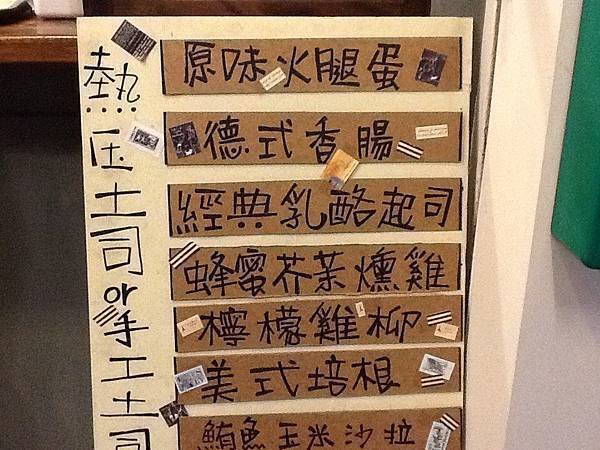 熱压土司or手工土司
原味火腿蛋
德式香腸
經典乳酪起司
蜂蜜芥茉燻雞
檸檬雞柳
美式培根
鮪魚玉米沙拉